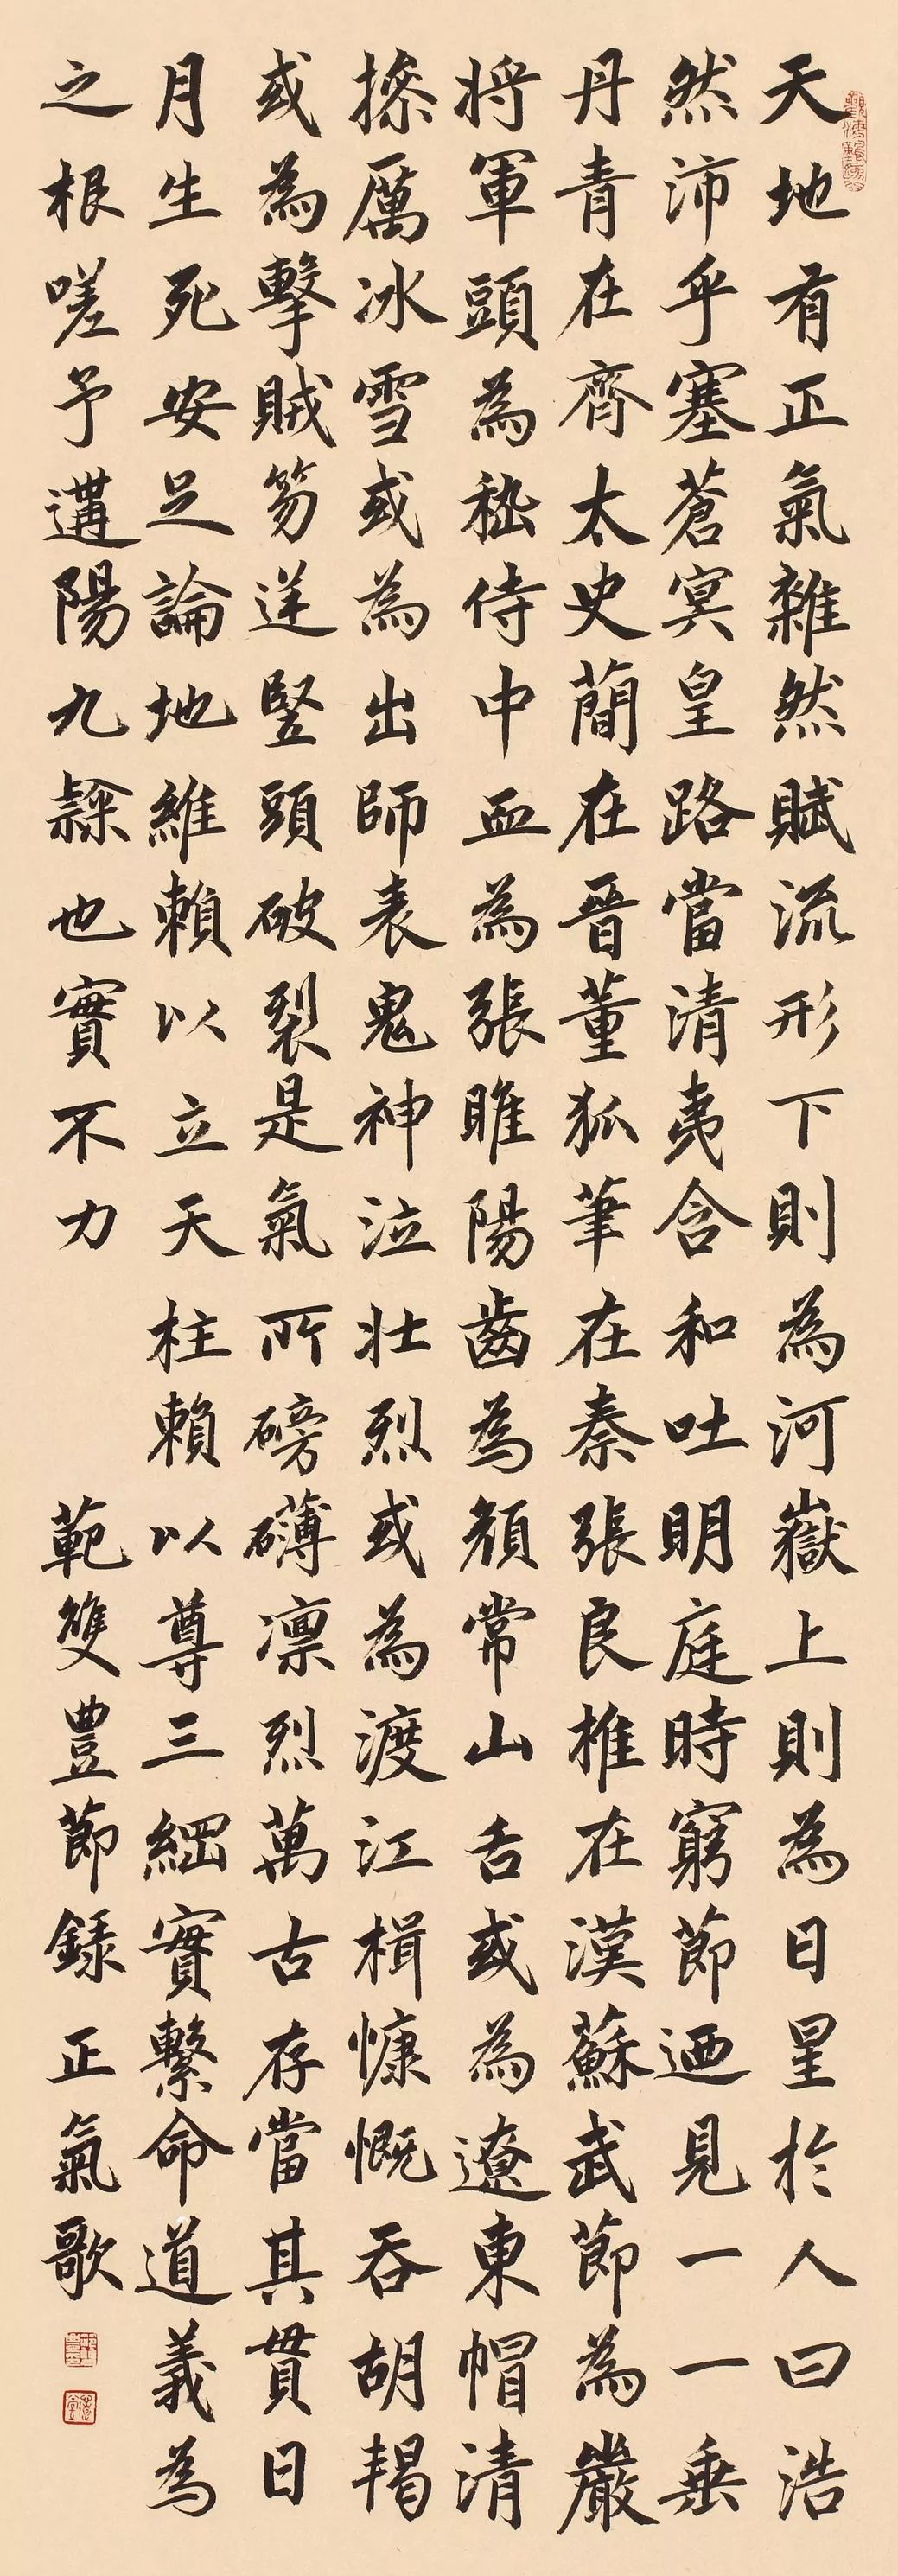 天地有正氣雜然賦流形下則為河嶽上則為日星於人曰浩
然沛乎塞蒼冥皇路當清夷含和吐明庭時窮節迺見一一垂
丹青在齊太史簡在晉董狐筆在秦張良椎在漢蘇武節為嚴
將軍頭為嵇侍中血為張睢陽齒為顏常山舌或為遼東帽清
操厲冰雪或為出師表鬼神泣壯烈或為渡江楫慷慨吞胡羯
或為擊賊笏逆豎頭破裂是氣所磅礴凛烈萬古存當其貫日
月生死安足論地維賴以立天柱賴以尊三綱實繫命道義為
之根嗟予遘陽九隸也實不力
範雙豊節錄正氣歌